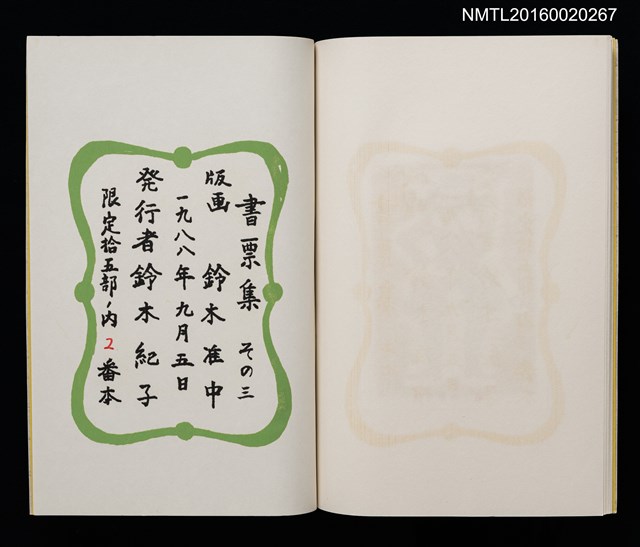 NMTL20160020267
書票集 その三
版画 鈴木准中
一九八八年九月五日
発行者鈴木紀子
限定拾五部ノ内 2 番本